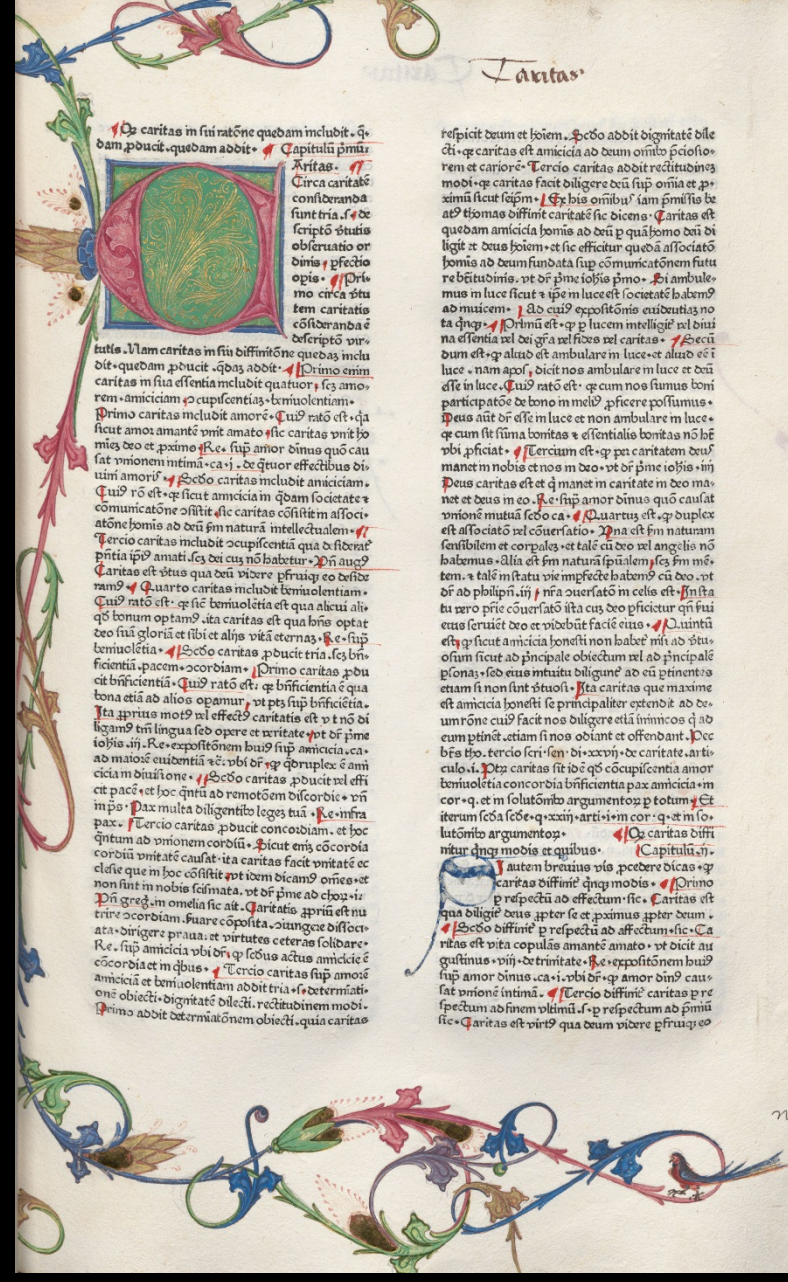 Caritas
¶Qꝫ caritas in sui ratōne quedam includit. q̄-
dam ꝓducit. quedam addit. ¶ Capitulū pmū.
Aritas. ¶
Circa caritatē
consideranda
sunt tria. s. de
scriptō v̄tutis
obseruatio or
dinis, pfectio
opis. ¶Pri-
mo circa v̄tu
tem caritatis
cōsideranda ē
descriptō vir-
tutis. Nam caritas in sui diffinitōne quedaz inclu
dit. quedam ꝓducit. qdaꝫ addit. ¶Primo enim
caritas in sua essentia includit quatuor, scꝫ amo-
rem. amiciciam ꝯcupiscentiaꝫ. beniuolentiam.
Primo caritas includit amorē. Cuiꝰ ratō est. qa
sicut amor amantē vnit amato, sic caritas vnit ho
mieꝫ deo et ꝓximo ¶Re. sup̄ amor dinus quō cau
sat vnionem intimā. ca. i. de q̄tuor effectibus di-
uini amoris. ¶Scďo caritas includit amiciciam.
Cuiꝰ rō est. qꝫ sicut amicicia in q̄dam societate ⁊
cōmunicatōne ꝯsistit, sic caritas cōsistit in associ-
atōne homis ad deū ẜm naturā intellectualem. ¶
Tercio caritas includit ꝯcupiscentiā qua desiderat
p̄ntia ip̄ꝰ amati. scꝫ dei cuꝫ nō habetur. Vn̄ augꝰ
Caritas est v̄tus qua deū videre pfruiqꝫ eo deside
ramꝰ. ¶ Quarto caritas includit beniuolentiam.
Cuiꝰ ratō est. qꝫ sic̄ beniuolētia est qua alicui ali-
qď bonum optamꝰ. ita caritas est qua hn̄s optat
deo suā gloriā et sibi et alijs vitā eternaꝫ. Re. sup̄
beniuolētia. ¶Scďo caritas ꝓducit tria. scꝫ bn̄-
ficientiā. pacem. ꝯcordiam. ¶Primo caritas ꝓdu
cit bn̄ficientiā. Cuiꝰ ratō est: qꝫ bn̄ficientia ē qua
bona etiā ad alios opamur, vt ptꝫ sup̄ bn̄ficiētia.
Ita ꝓprius motꝰ vel effectꝰ caritatis est v t nō di
ligamꝰ tm̄ lingua sed opere et veritate, vt dr̄ p̄me
iohis. iij. Re. expositōnem huiꝰ sup̄ amicicia. ca.
ad maiorē euidentiā ⁊c̄. vbi dr̄, qꝫ q̄druplex ē ami
cicia in diuisione. ¶Scďo caritas ꝓducit vel effi
cit pacē, et hoc q̄ntū ad remotōem discordie. vn̄
in p̄s. Pax multa diligentibꝰ legeꝫ tuā. Re. infra
pax. ¶Tercio caritas ꝓducit concordiam. et hoc
q̄ntum ad vnionem cordiū. Sicut enim cōcordia
cordiū vnitatē causat. ita caritas facit vnitatē ec
clesie que in hoc cōsistit, vt idem dicamꝰ om̄es. et
non sint in nobis scismata. vt dr̄ p̄me ad chor. i.
Vn̄ greg. in omelia sic ait. Caritatis ꝓpriū est nu
trire ꝯcordiam. ẜuare cōposita. ꝯiungere dissoci-
ata. dirigere praua. et virtutes ceteras solidare.
Re. sup̄ amicicia vbi dr̄. qꝫ scďus actus amicicie ē
cōcordia et in qbus. ¶ Tercio caritas sup̄ amorē
amiciciā et beniuolentiam addit tria. s. determiati-
onē obiecti. dignitatē dilecti. rectitudinem modi.
Primo addit determiatōnem obiecti. quia caritas
respicit deum et hoiem. Scďo addit dignitatē dile
cti. qꝫ caritas est amicicia ad deum om̄ibꝰ p̄ciosio-
rem et cariorē. Tercio caritas addit rectitudineꝫ
modi. qꝫ caritas facit diligere deū sup̄ om̄ia et ꝓ-
ximū sicut seip̄m. ¶Ex his om̄ibus iam p̄missis be
atꝰ thomas diffinit caritatē sic dicens. Caritas est
quedam amicicia homis ad deū p quā homo deū di
ligit et deus hoiem. et sic efficitur quedā associatō
homis ad deum fundata sup̄ cōmunicatōnem futu
re btitudinis. vt dr̄ p̄me iohis p̄mo. Si ambule-
mus in luce sicut ⁊ ip̄e in luce est societatē habemꝰ
ad inuicem. ¶Ad cuiꝰ expositōnis euidentiaꝫ no
ta q̄nqꝫ. ¶Primū est. qꝫ p lucem intelligit̄ vel diui
na essentia vel dei gr̄a vel fides vel caritas. ¶Secū
dum est. qꝫ aliud est ambulare in luce. et aliud eē i
luce. nam apos, dicit nos ambulare in luce et deū
esse in luce. Cuiꝰ ratō est. qꝫ cum nos sumus boni
participatōne de bono in meliꝰ ꝓficere possumus.
Deus aūt dr̄ esse in luce et non ambulare in luce.
qꝫ cum sit sūma bonitas ⁊ essentialis bonitas nō hꝫ
vbi ꝓficiat. ¶Tercium est. qꝫ per caritatem deus
manet in nobis et nos in deo. vt dr̄ p̄me iohis. iiij
Deus caritas est et q̄ manet in caritate in deo ma-
net et deus in eo. Re. sup̄ amor dinus quō causat
vnionē mutuā scďo ca. ¶Quartuꝫ est. qꝫ duplex
est associatō vel cōuersatio. Vna est ẜm naturam
sensibilem et corpaleꝫ. et talē cū deo vel angelis nō
habemus. Alia est ẜm naturā sp̄ualem, scꝫ ẜm mē-
tem. ⁊ talē in statu vie impfecte habemꝰ cū deo. vt
dr̄ ad philipn̄. iij, nr̄a ꝯuersatō in celis est. In sta
tu vero prie cōuersatō ista cuꝫ deo pficietur qn̄ ẜui
eius seruient deo et videbūt faciē eius. ¶Quintū
est, qꝫ sicut amicicia honesti non habet̄ nisi ad v̄tu-
osum sicut ad p̄ncipale obiectum vel ad p̄ncipalē
psonaꝫ. sed eius intuitu diligunt̄ ad eū ptinentes
etiam si non sint v̄tuosi. Ita caritas que maxime
est amicicia honesti se principaliter extendit ad de-
um rōne cuiꝰ facit nos diligere etiā inimicos q̄ ad
eum ptinēt. etiam si nos odiant et offendant. Hec
btūs tho. tercio scri. sen. di. xxvij. de caritate. arti-
culo. i. Ptꝫ caritas sit idē qď cōcupiscentia amor
beniuolētia concordia bn̄ficientia pax amicicia. in
cor. q. et in solutōnibꝰ argumentoꝝ p totum. ¶Et
iterum scďa scďe. q. xxiij. arti. i. in cor. q. et in so-
lutōnibꝰ argumentoꝝ. ¶Qꝫ caritas diffi
nitur q̄nqꝫ modis et quibus. ¶Capitulū. ij.
I autem breuius vis ꝓcedere dicas. qꝫ
caritas diffinit̄ q̄nqꝫ modis. ¶Primo
p respectū ad effectum. sic. Caritas est
qua diligit̄ deus ꝓpter se et ꝓximus ꝓpter deum.
¶Scďo diffinit̄ p respectū ad affectum. sic. Ca
ritas est vita copulās amantē amato. vt dicit au
gustinus. viij. de trinitate. Re. expositōnem huiꝰ
sup̄ amor dinus. ca. i. vbi dr̄. qꝫ amor dinꝰ cau-
sat vnionē intimā. ¶Tercio diffinit̄ caritas p re
spectum ad finem vltimū. s. p respectum ad p̄miū
sic. Caritas est virtꝰ qua deum videre pfruiqꝫ eo